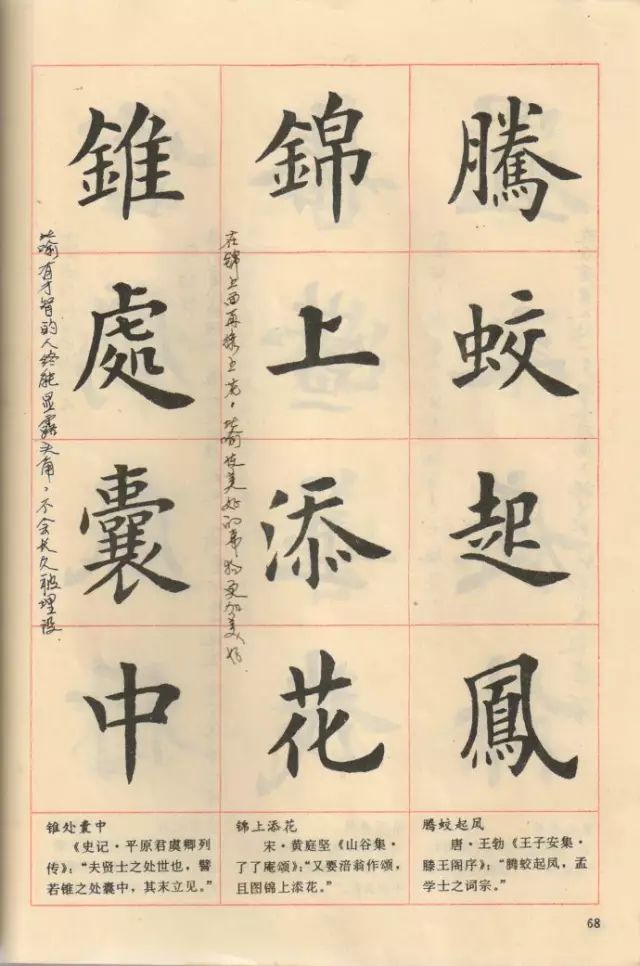 騰蛟起鳳
錦上添花
錐處囊中
在锦上面再添上花，比喻使美好的事物更加美好
比喻有才智的人终能显露头角，不会长久被埋没
腾蛟起凤
唐·王勃《王子安集·
滕王阁序》：“腾蛟起凤，孟
学士之词宗。”
锦上添花
宋·黄庭坚《山谷集·
了了庵颂》：“又要涪翁作颂，
且图锦上添花。”
锥处囊中
《史记·平原君虞卿列
传》：“夫贤士之处世也，譬
若锥之处囊中，其末立见。”
68